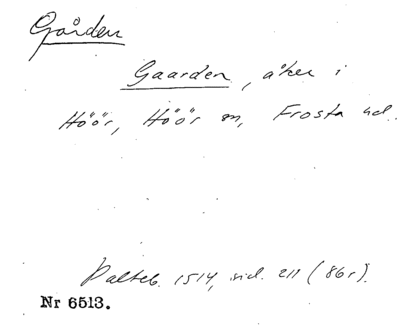 Gården
Gaarden, åker i
Höör, Höör sn, Frosta hd.
Palteb. 1514, sid. 211 (86r).
Nr 6513.